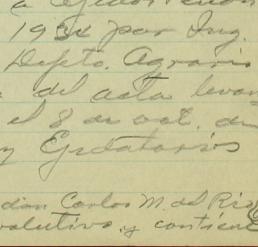 a Ejidos
1934 por Ing.
Depto. Agrario
del acta levan
el 8 de oct. de
y Ejidatarios
dian Carlos M. del Rio
volutivo, y contiene